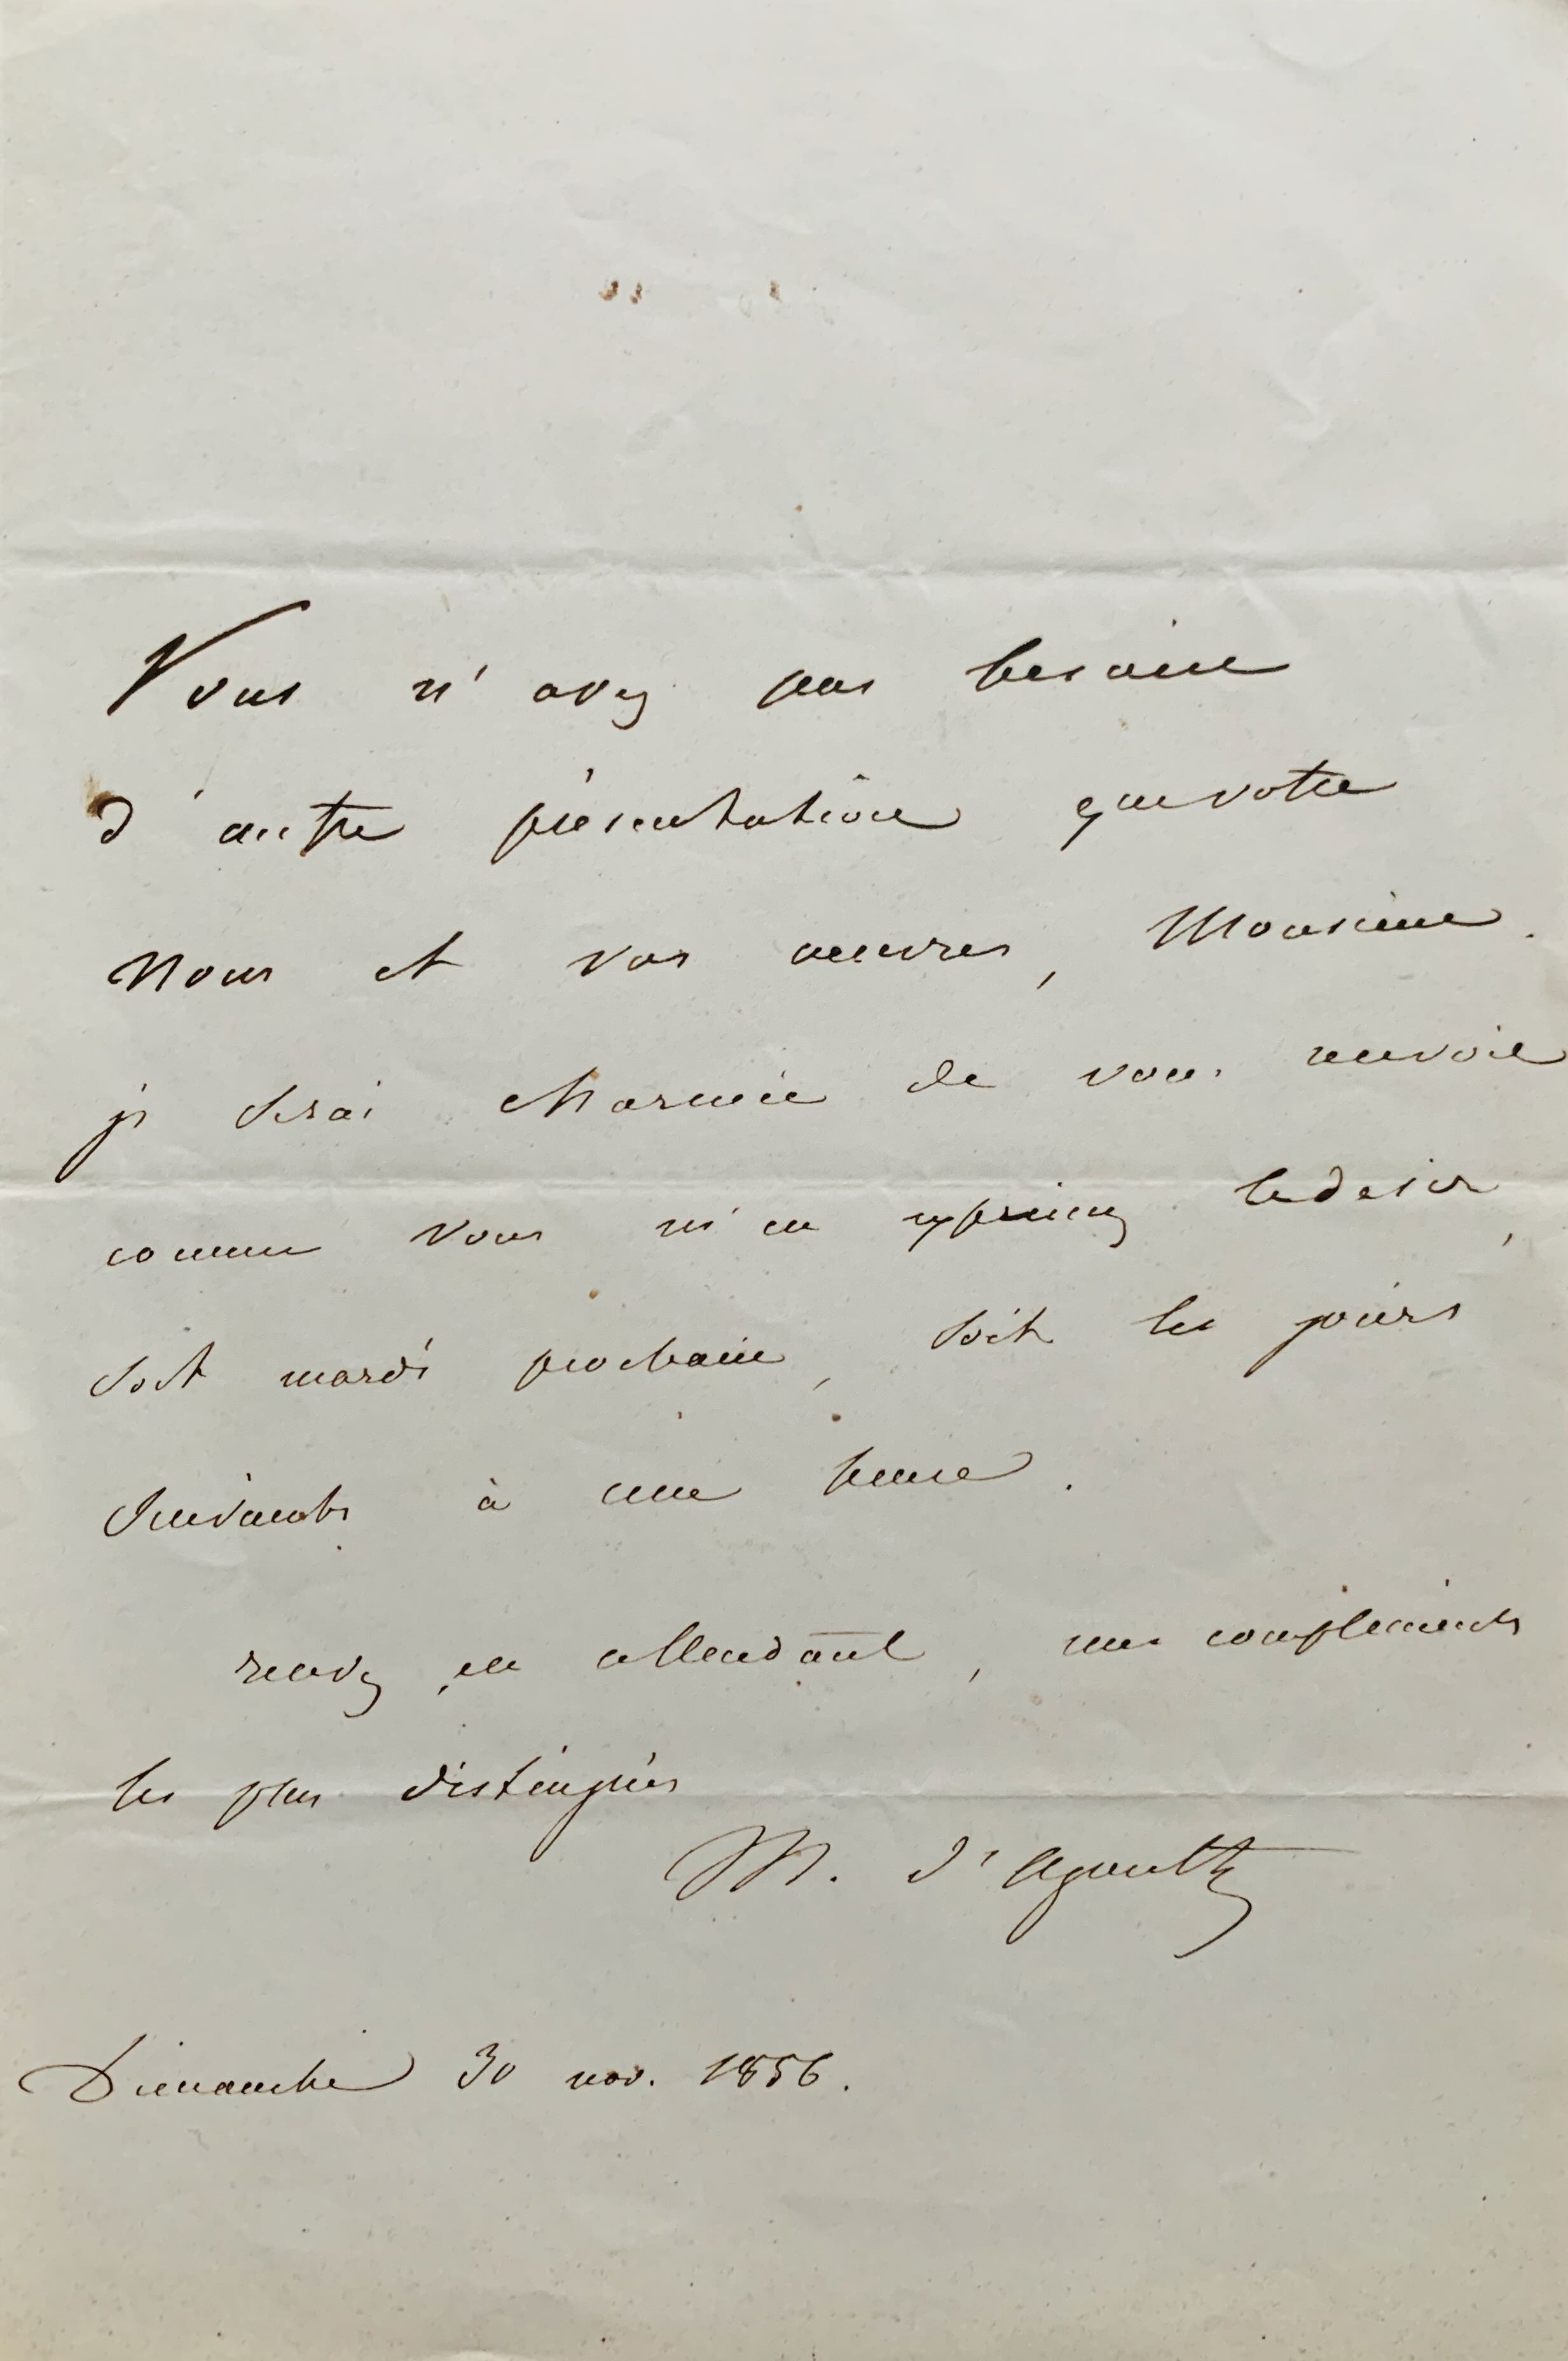 Vous n'avez pas besoin
d'autre présentation que votre
nom et vos œuvres, Monsieur.
je serai charmée de vous recevoir
comme vous m'en exprimez le desir,
soit mardi prochain, soit les jours
suivants à une heure.
recevez, en attendant, mes compliments
les plus distingués
M. d'Agoult
Dimanche 30 nov. 1856.